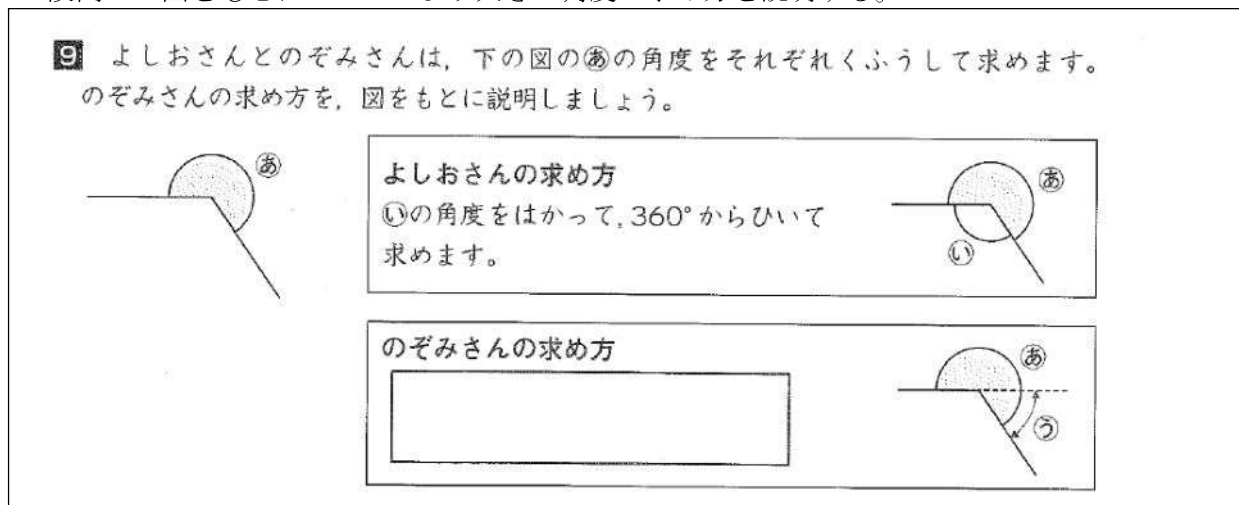 9 よしおさんとのぞみさんは，下の図のあの角度をそれぞれくふうして求めます。
のぞみさんの求め方を，図をもとに説明しましょう。
あ
よしおさんの求め方
いの角度をはかって，360°からひいて
求めます。
あ
い
のぞみさんの求め方
あ
う